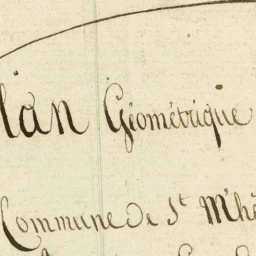 lan Géométrique
Commune de St M'hé